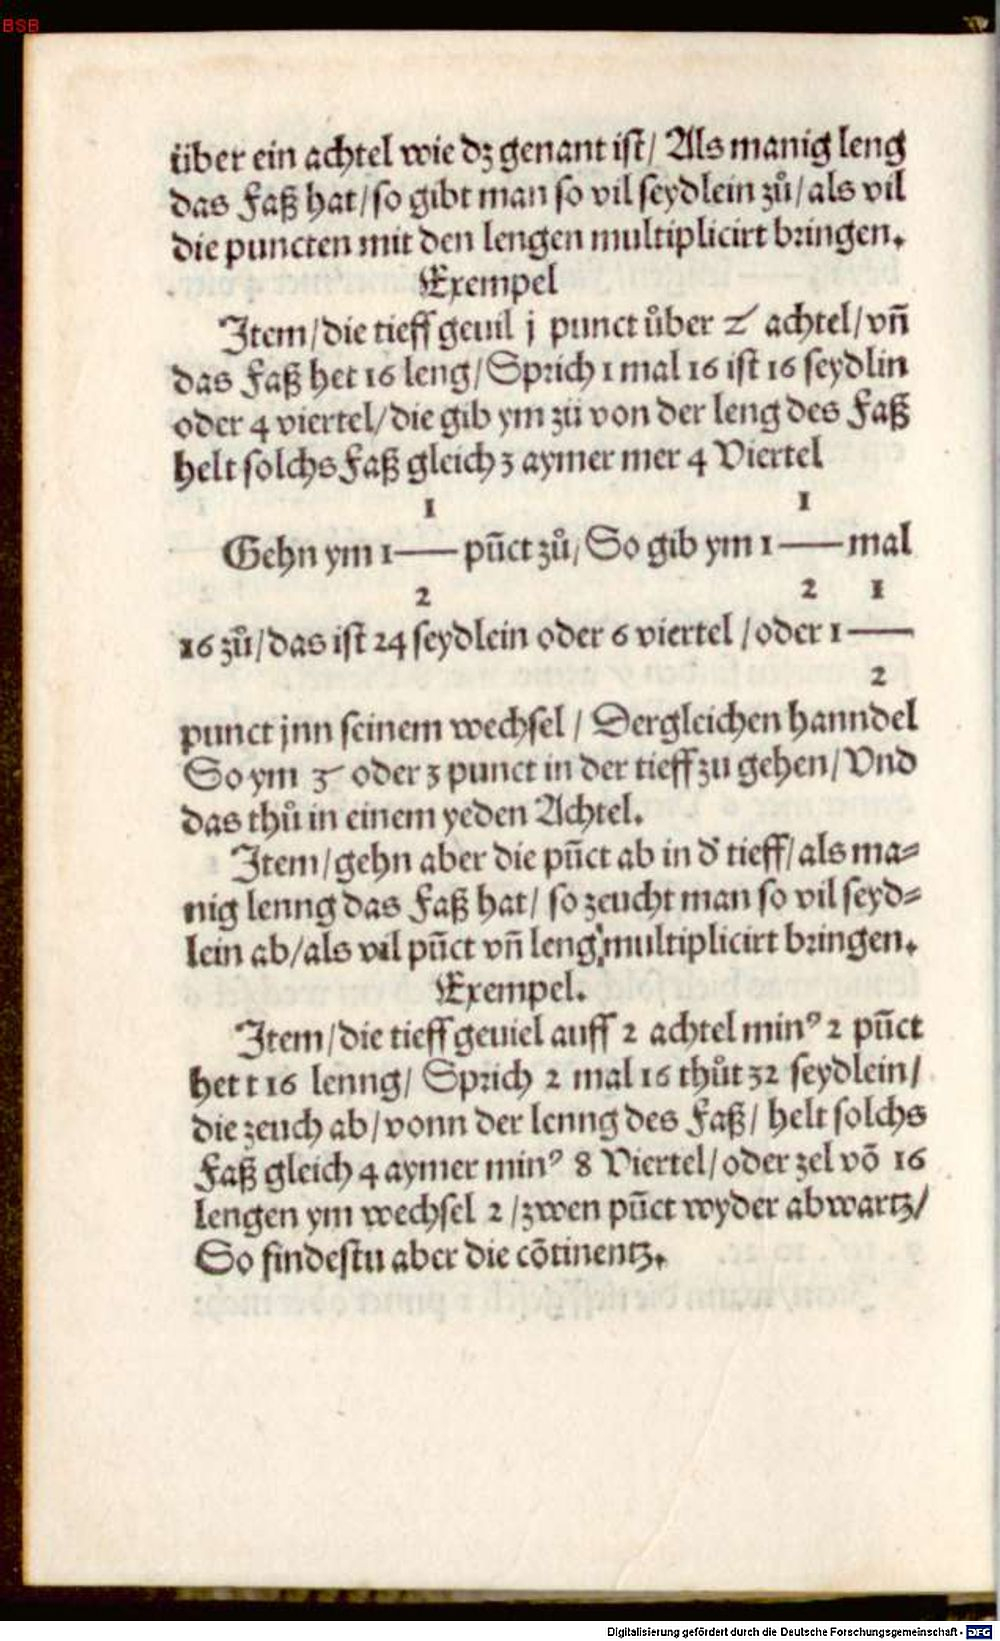 BSB
über ein achtel wie dz genant ist/ Als manig leng
das Faß hat/so gibt man so vil seydlein zů/als vil
die puncten mit den lengen multiplicirt bringen.
Exempel
Item/die tieff geuil j punct ůber 2 achtel/vn̄
das Faß het 16 leng/Sprich 1 mal 16 ist 16 seydlin
oder 4 viertel/die gib ym zü von der leng des Faß
helt solchs Faß gleich 3 aymer mer 4 Viertel
1 1
Gehn ym 1— pūct zů/ So gib ym 1— mal
2 2 1
16 zů/das ist 24 seydlein oder 6 viertel /oder 1—
2
punct jnn seinem wechsel / Dergleichen hanndel
So ym oder 3 punct in der tieff zu gehen/Vnd
das thů in einem yeden Achtel.
Item/gehn aber die pūct ab in d̕ tieff/als ma⸗
nig lenng das Faß hat/ so zeucht man so vil seyd⸗
lein ab/als vil pūct vn̄ leng multiplicirt bringen.
Exempel.
Item/die tieff geuiel auff 2 achtel minꝰ 2 pūct
het t 16 lenng/ Sprich 2 mal 16 thůt 32 seydlein/
die zeuch ab/vonn der lenng des Faß/ helt solchs
Faß gleich 4 aymer minꝰ 8 Viertel/oder zel võ 16
lengen ym wechsel 2 /zwen pūct wyder abwartz/
So findestu aber die cõtinentz.
Digitalisierung gefördert durch die Deutsche Forschungsgemeinschaft - DFG